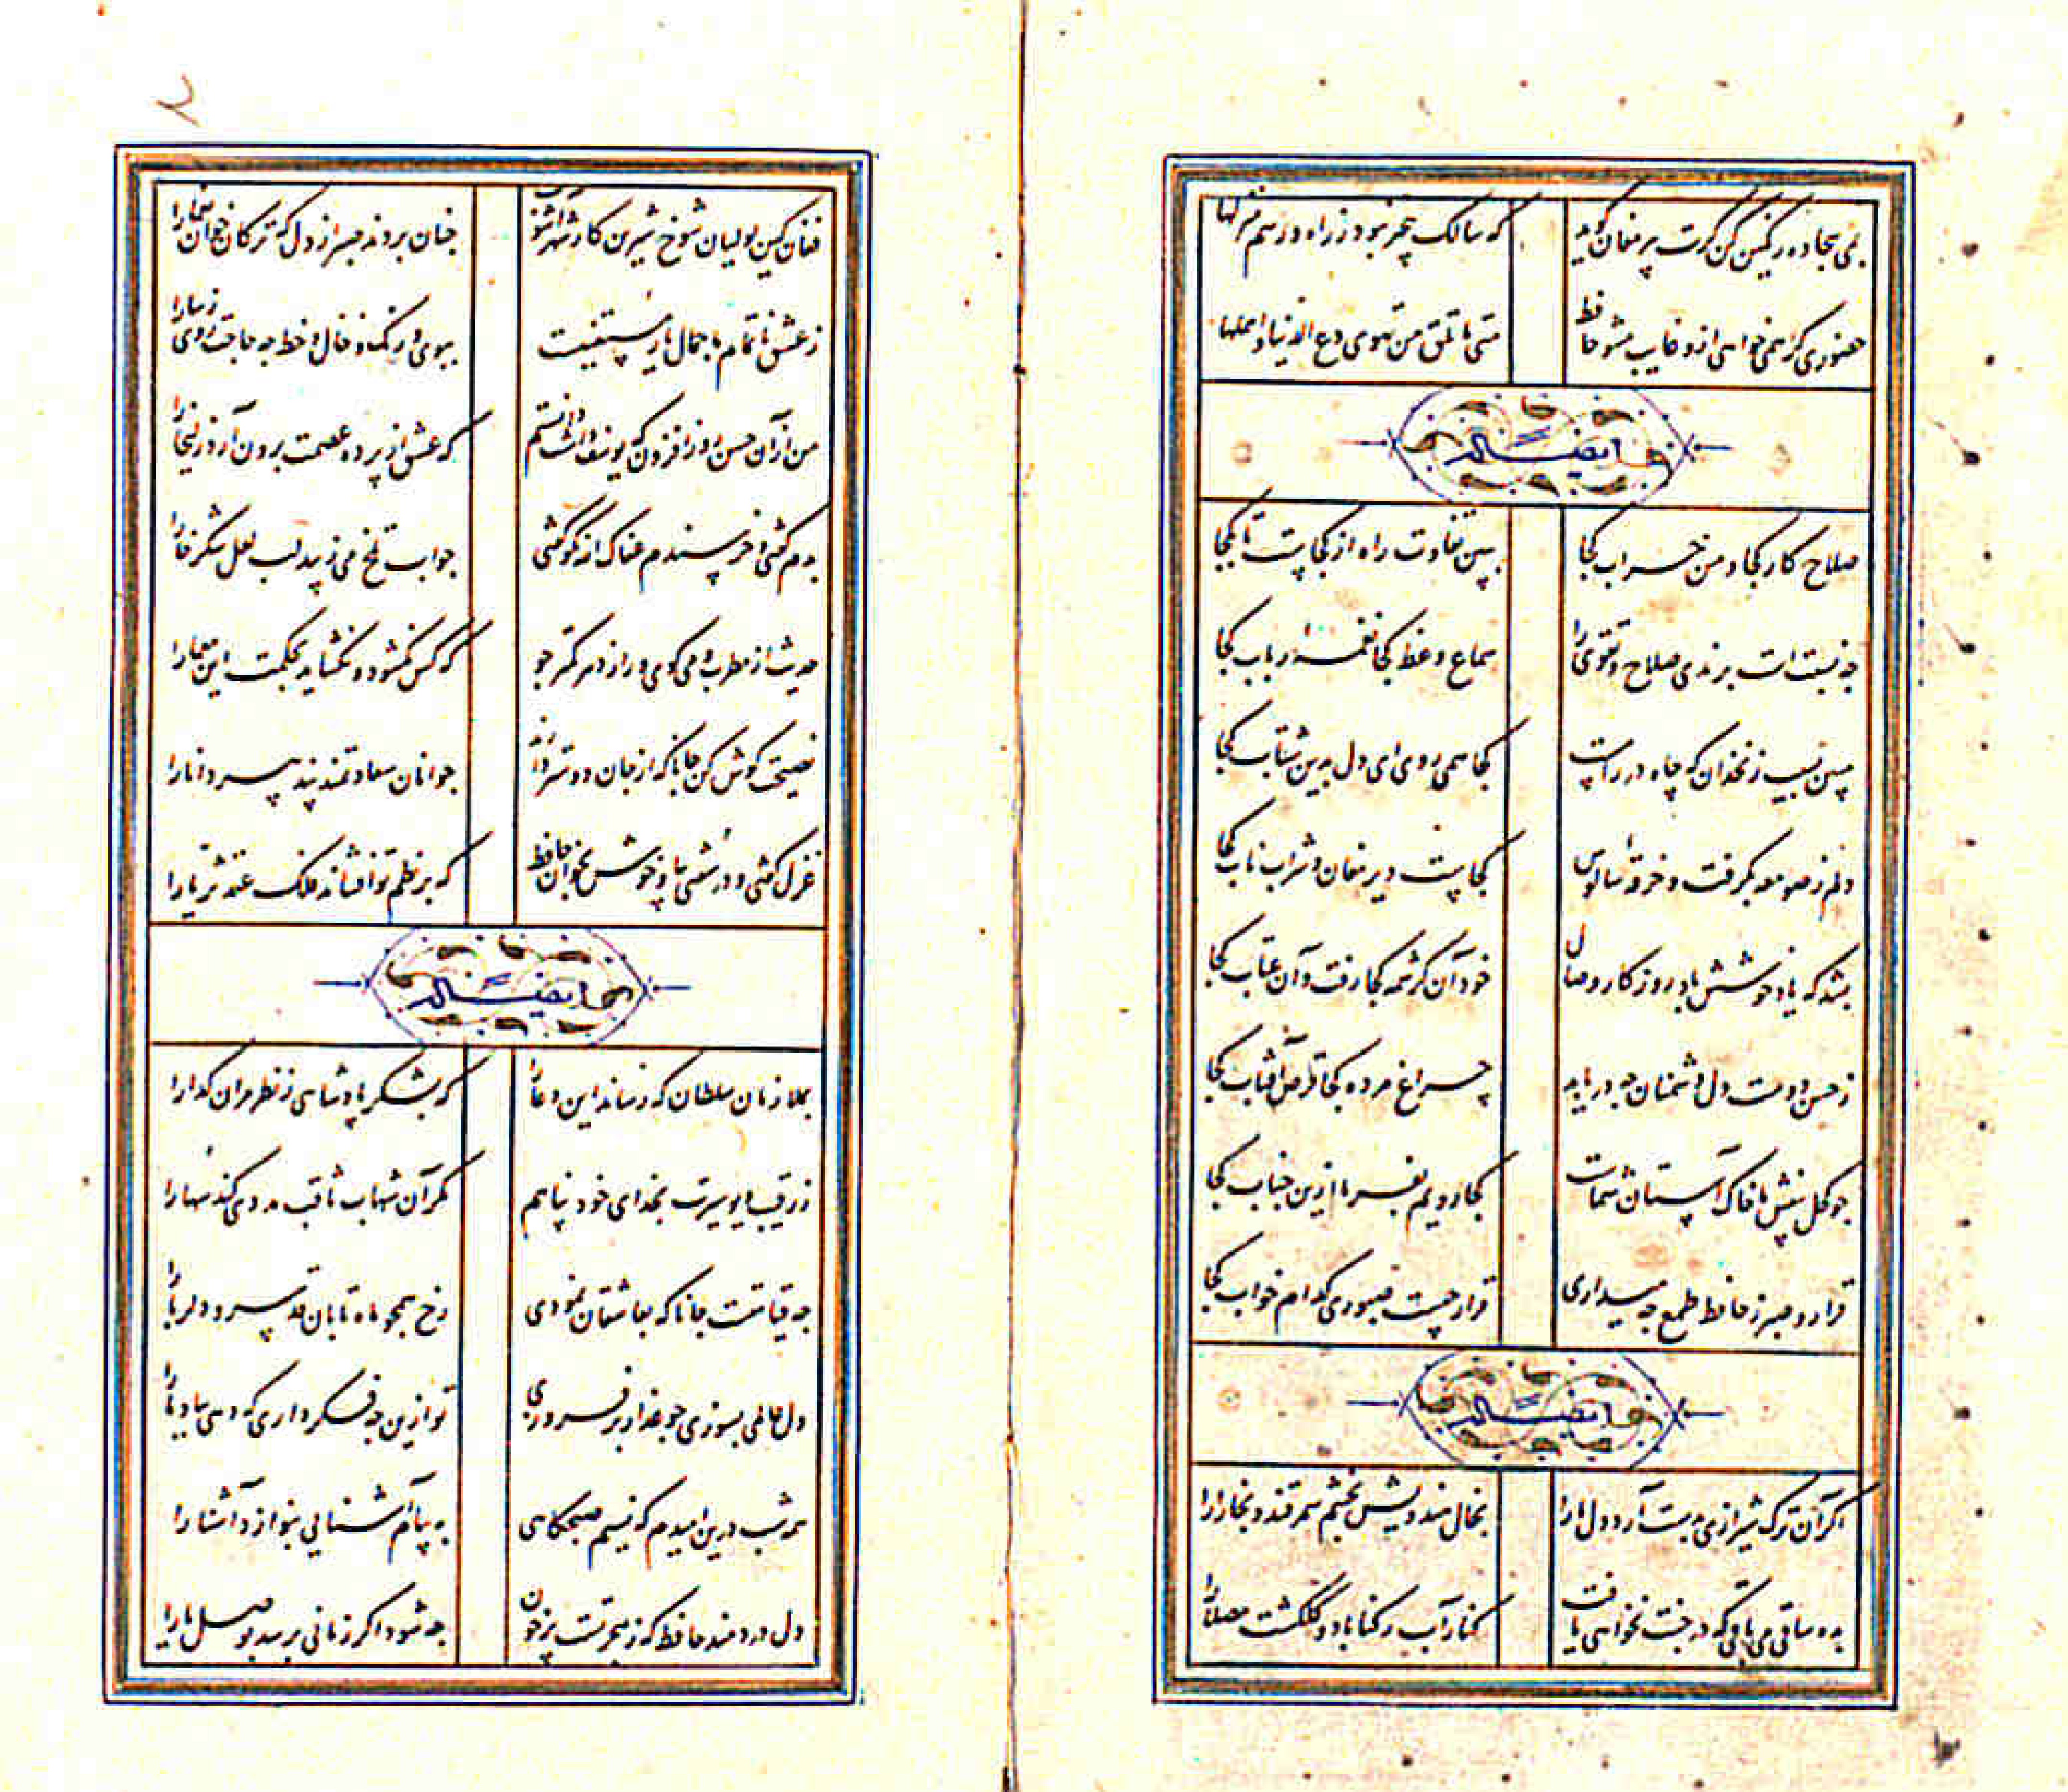 بمی سجاده رنگین کن گرت پیر مغان گوید که سالک بیخبر نبود ز راه و رسم منزلها
حضوری گر همی خواهی ازو غایب مشو حافظ متی ما تلق من تهوی دع الدنیا و اهملها
و ایضاً له
صلاح کار کجا و من خراب کجا ببین تفاوت راه از کجاست تا بکجا
چه نسبت است برندی صلاح و تقوی را سماع وعظ کجا نغمه رباب کجا
مبین بسیب زنخدان که چاه در راهست کجا همی روی ای دل بدین شتاب کجا
دلم ز صومعه بگرفت و خرقه سالوس کجاست دیر مغان و شراب ناب کجا
بشد که یاد خوشش باد روزگار وصال خود آن کرشمه کجا رفت و آن عتاب کجا
ز حسن دوست دل دشمنان چه دریابد چراغ مرده کجا قرص آفتاب کجا
چو کحل بینش ما خاک آستان شماست کجا رویم بفرما ازین جناب کجا
قرار و صبر ز حافظ طمع چه میداری قرار چیست صبوری کدام خواب کجا
و ایضاً له
اگر آن ترک شیرازی بدست آرد دل ما را بخال هندویش بخشم سمرقند و بخارا را
بده ساقی می باقی که در جنت نخواهی یافت کنار آب رکناباد و گلگشت مصلا را
۲
فغان کین لولیان شوخ شیرین کار شهرآشوب چنان بردند صبر از دل که ترکان خوان یغما را
ز عشق ناتمام ما جمال یار مستغنیست ببوی و رنگ و خال و خط چه حاجت روی زیبا را
من از آن حسن روزافزون که یوسف داشت دانستم که عشق از پرده عصمت برون آرد زلیخا را
بدم گفتی و خرسندم عفاک الله نکو گفتی جواب تلخ می زیبد لب لعل شکرخا را
حدیث از مطرب و می گوی و راز دهر کمتر جو که کس نگشود و نگشاید بحکمت این معما را
نصیحت گوش کن جانا که از جان دوستر دارند جوانان سعادتمند پند پیر دانا را
غزل گفتی و در سفتی بیا و خوش بخوان حافظ که بر نظم تو افشاند فلک عقد ثریا را
ایضاً له
بملازمان سلطان که رساند این دعا را که بشکر پادشاهی ز نظر مران گدا را
ز رقیب دیو سیرت بخدای خود پناهم مگر آن شهاب ثاقب مددی کند سها را
چه قیامتست جانا که بعاشقان نمودی رخ همچو ماه تابان قد سرو دلربا را
دل عالمی بسوزی چو عذار برفروزی تو ازین چه فکر داری که دهی بباد ما را
همه شب درین امیدم که نسیم صبحگاهی به پیام آشنایی بنوازد آشنا را
دل دردمند حافظ که ز هجر تست پر خون چه شود اگر زمانی برسد بوصل یارا